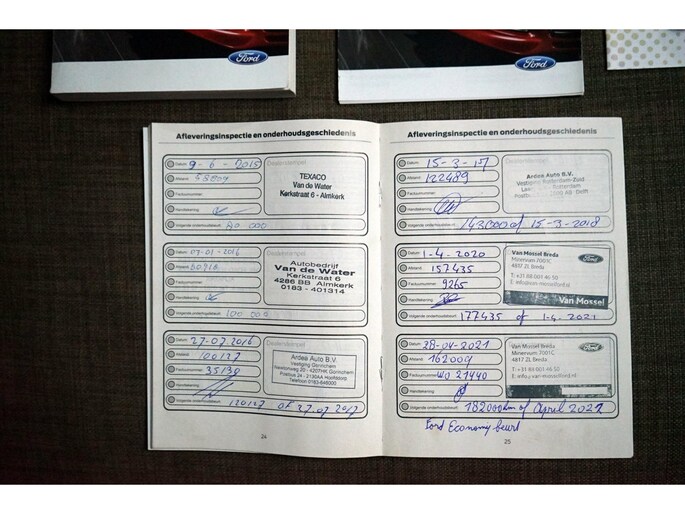 Ford
Ford
Afleveringsinspectie en onderhoudsgeschiedenis
Datum 9-6-2015
Afstand
Factuurnummer
Handtekening
Volgende onderhoudsbeurt 80 000
Dealerstempel
TEXACO
Van de Water
Kerkstraat 6 - Almkerk
Datum 07-01-2016
Afstand
Factuurnummer
Handtekening
Volgende onderhoudsbeurt 100 000
Dealerstempel
Autobedrijf
Van de Water
Kerkstraat 6
4286 BB Almkerk
0183 - 401314
Datum 27-07-2016
Afstand 100127
Factuurnummer 35130
Handtekening
Volgende onderhoudsbeurt 120127 OF 27-07 2017
Dealerstempel
Ardea Auto B.V.
Vestiging Gorinchem
Newtonweg 20 - 4207HK Gorinchem
Postbus 24 - 2130AA Hoofddorp
Telefoon 0183-646000
24
Afleveringsinspectie en onderhoudsgeschiedenis
Datum 15-3-17
Afstand 122489
Factuurnummer
Handtekening
Volgende onderhoudsbeurt 143000 of 15-3-2018
Ardea Auto B.V.
Vestiging Rotterdam-Zuid
Rotterdam
AB Delft
Datum 1-4-2020
Afstand 157435
Factuurnummer 9265
Handtekening
Volgende onderhoudsbeurt 177435 of 1-4-2021
Van Mossel Breda
Minervum 7001C
4817 ZL Breda
T: +31 88 001 46 50
E: info@van-mosselford.nl
Ford
Van Mossel
Datum 28-04-2021
Afstand 162009
Factuurnummer WO 21440
Handtekening
Volgende onderhoudsbeurt 182000km of April 2021
Van Mossel Breda
Minervum 7001C
4817 ZL Breda
T: +31 88 001 46 50
Ford
Ford Economy beurt
25